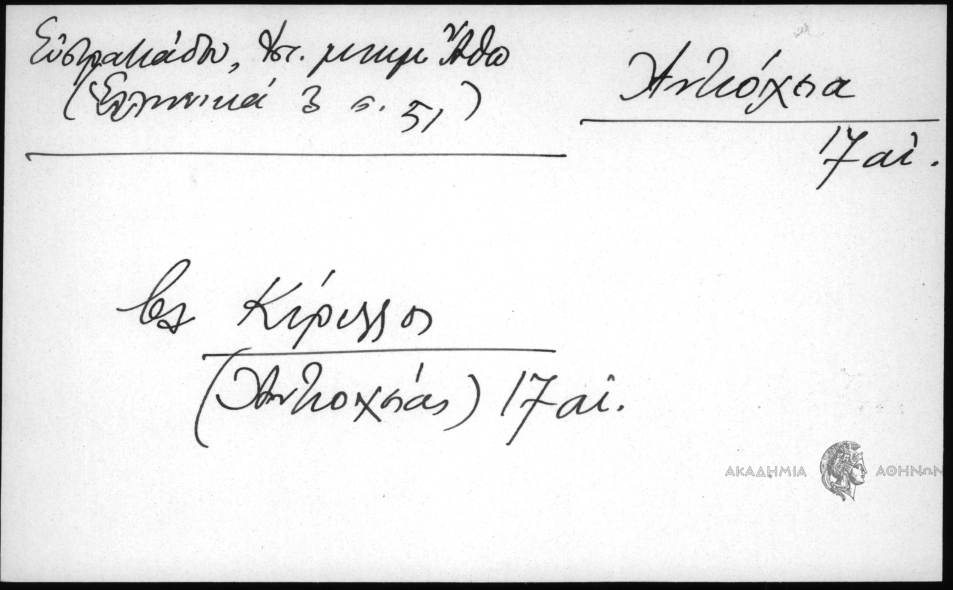 Εὐστρατιάδου, Ἱστ. μνημ Ἄθω
(Ἑλληνικά 3 σ. 51)
Ἀντιόχεια
17 αἰ.
βλ Κύριλλος
(Ἀντιοχείας) 17 αἰ.
ΑΚΑΔΗΜΙΑ ΑΘΗΝΩΝ